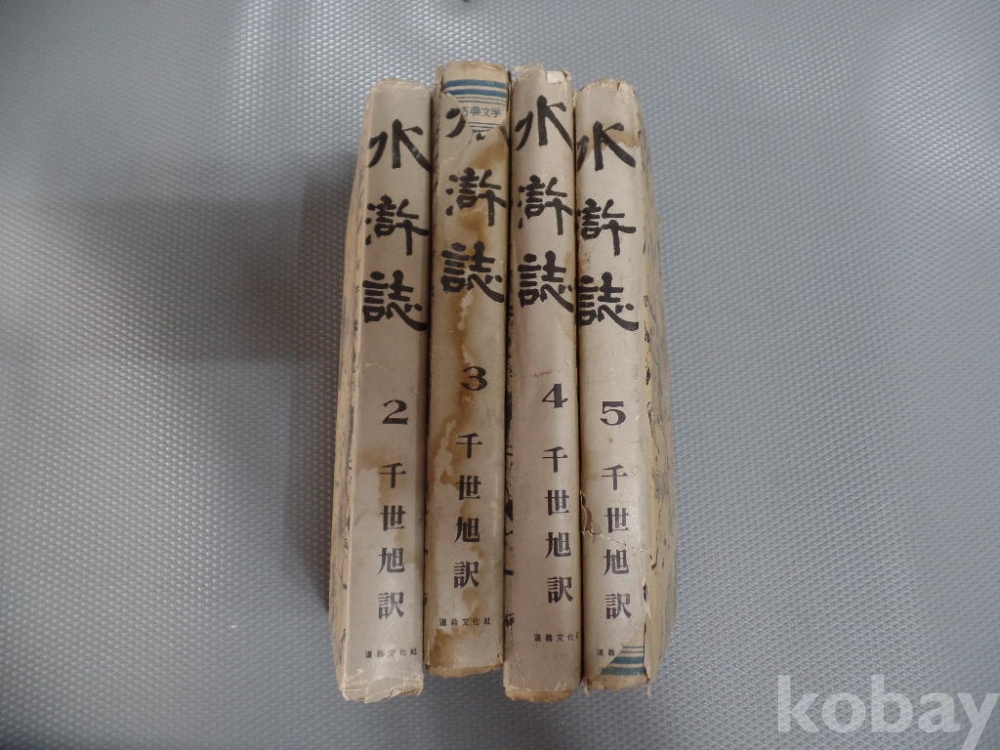 水滸誌
2
千世旭訳
道義文化社
古典文学
水滸誌
3
千世旭訳
道義文化社
水滸誌
4
千世旭訳
道義文化
水滸誌
5
千世旭訳
道義
kobay